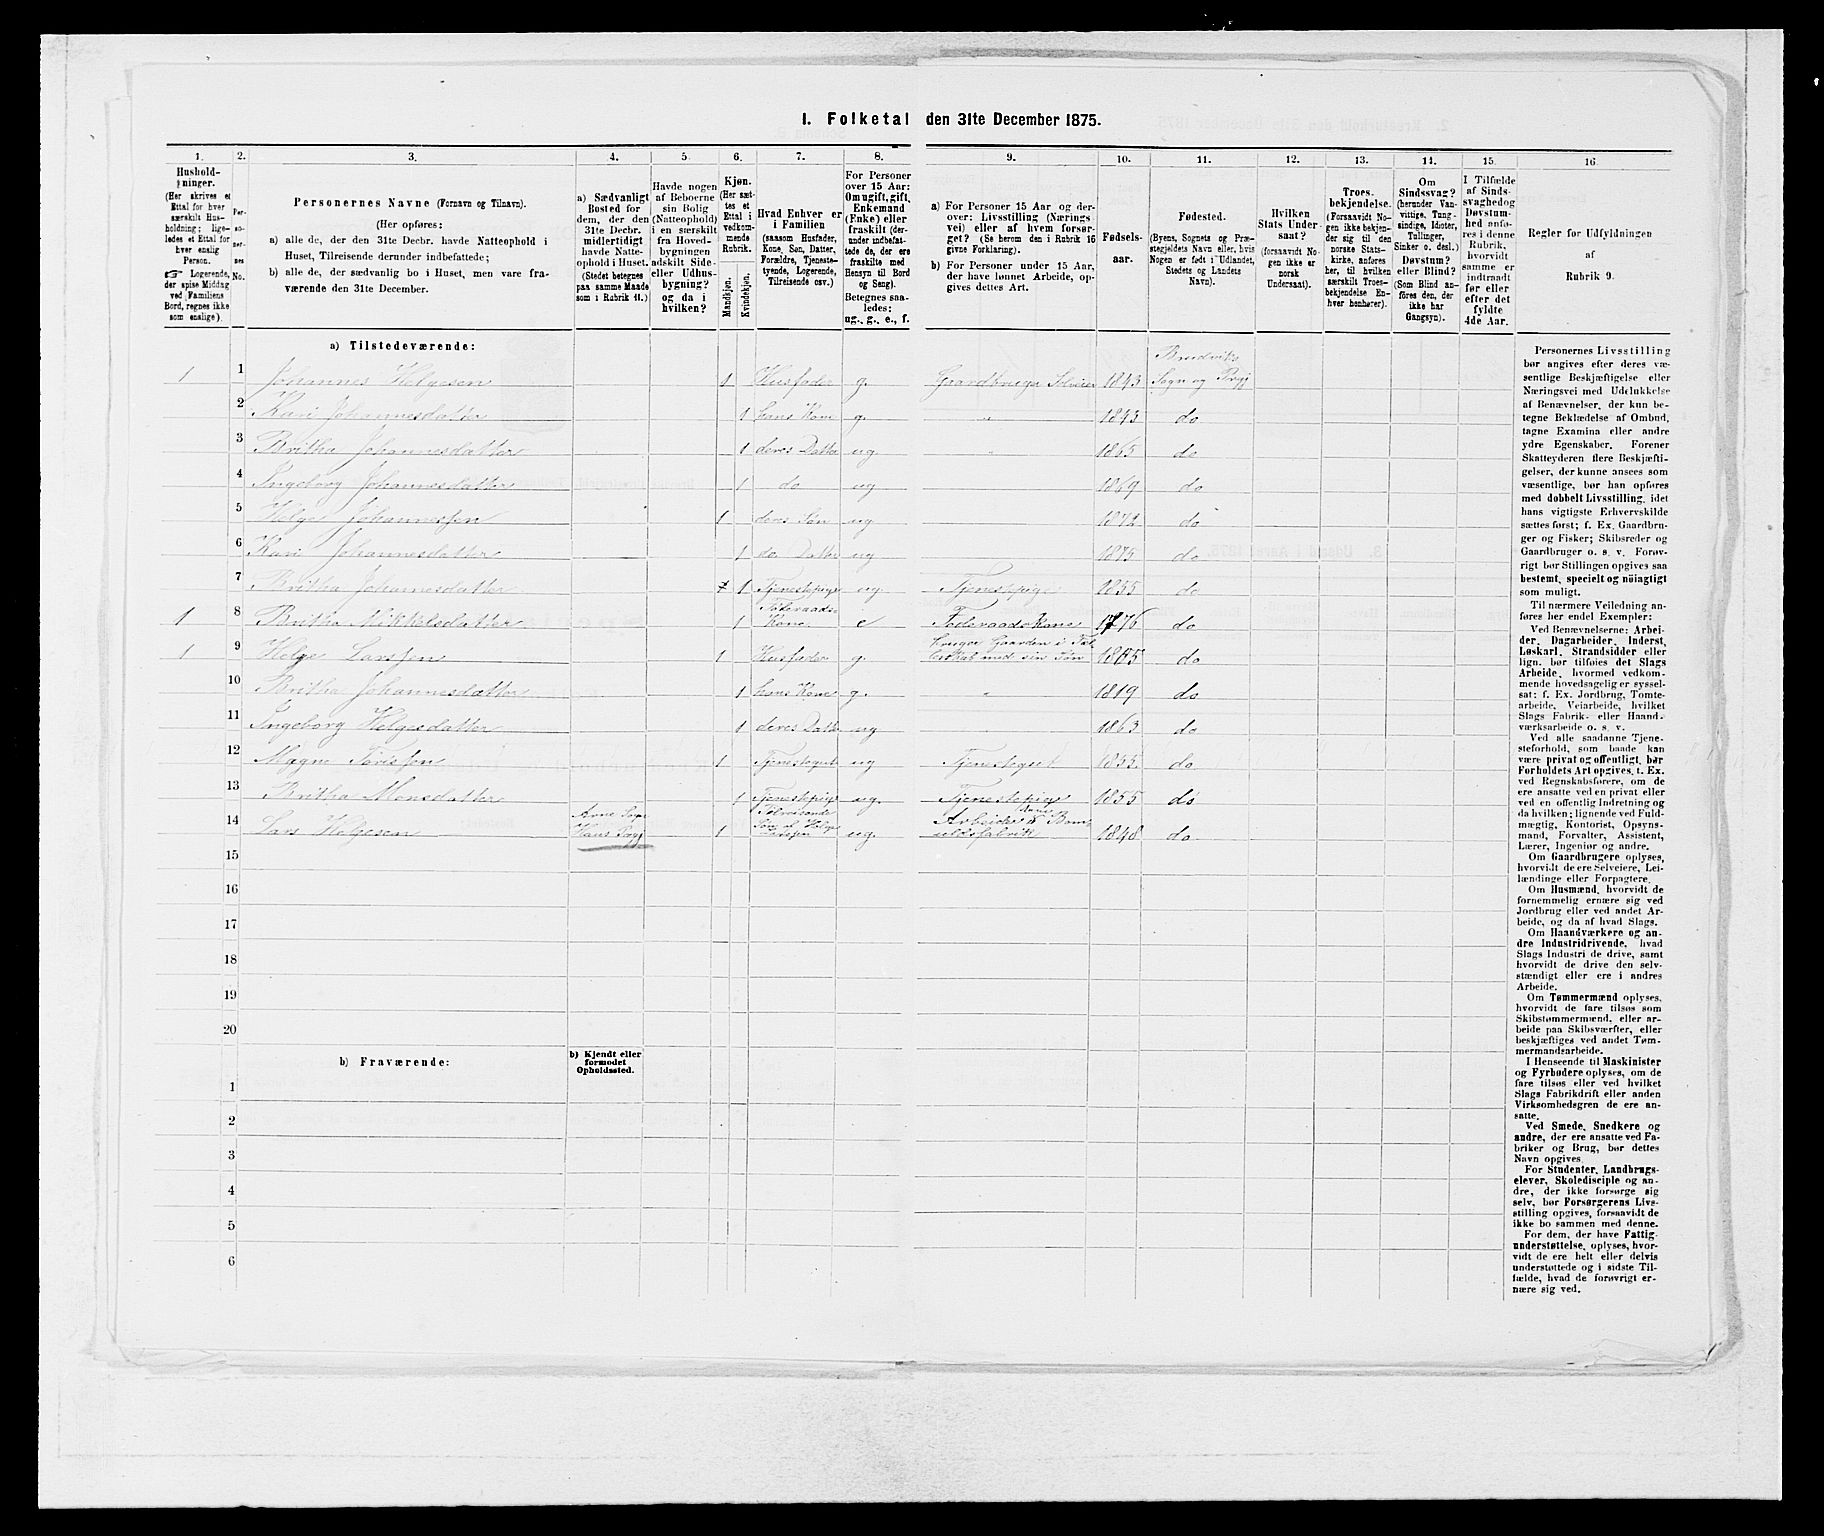 1. Folketal den 31te December 1875.
1. 2. 3. 4. 5. 6. 7. 8. 9. 10. 11. 12. 13. 14. 15. 16.
Hushold-
ninger.
(Her skrives et
Ettal for hver
særskilt Hus-
holdning; lige-
ledes et Ettal for
hver enslig
Person.
☞ Logerende,
der spise Middag
ved Familiens
Bord, regnes ikke
som enslige).
Per-
so-
ner-
nes
No.
Personernes Navne (Fornavn og Tilnavn).
(Her opføres:
a) alle de, der den 31te Decbr. havde Natteophold i
Huset, Tilreisende derunder indbefattede;
b) alle de, der sædvanlig bo i Huset, men vare fra-
værende den 31te December.
a) Sædvanligt
Bosted for
dem, der den
31te Decbr.
midlertidigt
havde Natte-
ophold i Huset.
(Stedet betegnes
paa samme Maade
som i Rubrik 11.)
Havde nogen
af Beboerne
sin Bolig
(Natteophold)
i en særskilt
fra Hoved-
bygningen
adskilt Side-
eller Udhus-
bygning?
og da i
hvilken?
Kjøn.
(Her sæt-
tes et
Ettal i
vedkom-
mende
Rubrik.
Mandkjøn.
Kvindekjøn.
Hvad Enhver er
i Familien
(saasom Husfader,
Kone, Søn, Datter,
Forældre, Tjeneste-
tyende, Logerende,
Tilreisende osv.)
For Personer
over 15 Aar:
Om ugift, gift,
Enkemand
(Enke) eller
fraskilt (der-
under indbefat-
tede de, der ere
fraskilte med
Hensyn til Bord
og Seng).
Betegnes saa-
ledes:
ug., g., e., f.
a) For Personer 15 Aar og der-
over: Livsstilling (Nærings-
vei) eller af hvem forsør-
get? (Se herom den i Rubrik 16
givne Forklaring).
b) For Personer under 15 Aar,
der have lønnet Arbeide, op-
gives dettes Art.
Fødsels-
aar.
Fødested.
(Byens, Sognets og Præ-
stegjeldets Navn eller, hvis
Nogen er født i Udlandet,
Stedets og Landets
Navn).
Hvilken
Stats Under-
saat?
(forsaavidt No-
gen ikke er
norsk
Undersaat).
Troes-
bekjendelse.
(Forsaavidt No-
gen ikke bekjen-
der sig til den
norske Stats-
kirke, anføres
her, til hvilken
særskilt Troes-
bekjendelse En-
hver henhører).
Om
Sindssvag?
(herunder Van-
vittige, Tung-
sindige, Idioter,
Tullinger,
Sinker o. desl.)
Døvstum?
eller Blind?
(Som Blind an-
føres den, der
ikke har
Gangsyn).
I Tilfælde
af Sinds-
svaghed og
Døvstum-
hed anfø-
res i denne
Rubrik,
hvorvidt
samme er
indtraadt
før eller
efter det
fyldte
4de Aar.
Regler for Udfyldningen
af
Rubrik 9.
a) Tilstedeværende:
1 1 Johannes Helgesen 1 Husfader g. Gaardbruger Selveier 1843 Brudviks Sogn og Prgj
2 Kari Johannesdatter 1 hans Kone g. " 1843 do
3 Britha Johannesdatter 1 deres Datter ug. " 1865 do
4 Ingeborg Johannesdatter 1 do ug 1869 do
5 Helge Johannessen 1 deres Søn ug 1872 do
6 Kari Johannesdatter 1 do Datter ug 1875 do
7 Britha Johannesdatter 1 Tjenestepige ug. Tjenestepige 1855 do
1 8 Britha Mikkelsdatter 1 Føderaads Kone e Føderaadskone 1776 do
1 9 Helge Larssen 1 Husfader g. bruger Gaarden i Fællesskab med sin Søn 1815 do
10 Britha Johannesdatter 1 hans Kone g. " 1819 do
11 Ingeborg Helgesdatter 1 deres Datter ug 1863 do
12 Magne 1 Tjenestegut ug Tjenestegut 1855. do
13 Britha Monsdatter 1 Tjenestepige ug. Tjenestepige 1855 do
14 Lars Helgesen Arne Sogn Hans Prgj 1 Søn af Helge Larssen ug. Arbeider Bomuldsfabrik 1848 do
15
16
17
18
19
20
b) Fraværende:
b) Kjendt eller
formodet
Opholdssted.
1
2
3
4
5
6
Personernes Livsstilling
bør angives efter deres væ-
sentlige Beskjæftigelse eller
Næringsvei med Udelukkelse
af Benævnelser, der kun be-
tegne Beklædelse af Ombud,
tagne Examina eller andre
ydre Egenskaber. Forener
Skatteyderen flere Beskjæfti-
gelser, der kunne ansees som
væsentlige, bør han opføres
med dobbelt Livsstilling, idet
hans vigtigste Erhvervskilde
sættes først; f. Ex. Gaardbru-
ger og Fisker; Skibsreder og
Gaardbruger o. s. v. Forøv-
rigt bør Stillingen opgives saa
bestemt, specielt og nöiagtigt
som muligt.
Til nærmere Veiledning an-
føres her endel Exempler:
Ved Benævnelserne: Arbei-
der, Dagarbeider, Inderst,
Løskarl, Strandsidder eller
lign. bør tilføies det Slags
Arbeide, hvormed vedkom-
mende hovedsagelig er syssel-
sat: f. Ex. Jordbrug, Tomte-
arbeide, Veiarbeide, hvilket
Slags Fabrik- eller Haand-
værksarbeide o. s. v.
Ved alle saadanne Tjene-
steforhold, som baade kan
være privat og offentligt, bør
Forholdets Art opgives, t. Ex.
ved Regnskabsførere, om de
ere ansatte ved en privat eller
ved en offentlig Indretning og
da hvilken; lignende ved Fuld-
mægtig, Kontorist, Opsyns-
mand, Forvalter, Assistent,
Lærer, Ingeniør og andre.
Om Gaardbrugere oplyses,
hvorvidt de ere Selveiere, Lei-
lændinge eller Forpagtere.
Om Husmænd, hvorvidt de
fornemmelig ernære sig ved
Jordbrug eller ved andet Ar-
beide, og da af hvad Slags.
Om Haandværkere og an-
dre Industridrivende, hvad
Slags Industri de drive, samt
hvorvidt de drive den selv-
stændigt eller ere i andres
Arbeide.
Om Tømmermænd oplyses,
hvorvidt de fare tilsøs som
Skibstømmermænd, eller ar-
beide paa Skibsværfter, eller
beskjæftiges ved andet Tøm-
mermandsarbeide.
I Henseende til Maskinister
og Fyrbødere oplyses, om de
fare tilsøs eller ved hvilket
Slags Fabrikdrift eller anden
Virksomhedsgren de ere an-
satte.
Ved Smede, Snedkere og
andre, der ere ansatte ved Fa-
briker og Brug, bør dettes
Navn opgives.
For Studenter, Landbrugs-
elever, Skoledisciple og an-
dre, der ikke forsørge sig
selv, bør Forsørgerens Livs-
stilling opgives, forsaavidt de
ikke bo sammen med denne.
For dem, der have Fattig-
understøttelse, oplyses, hvor-
vidt de ere helt eller delvis
understøttede og i sidste Til-
fælde, hvad de forøvrigt er-
nære sig ved.